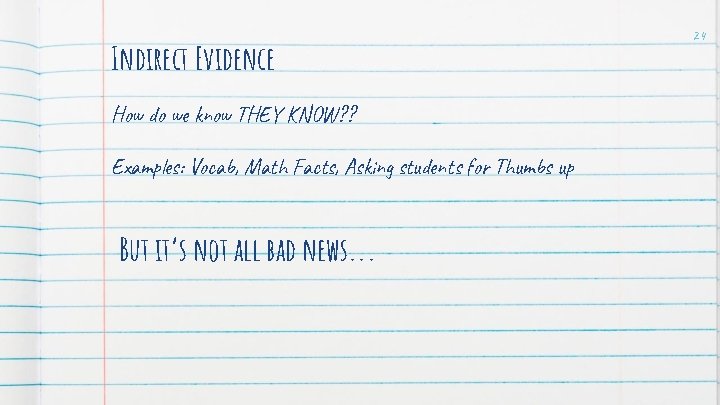 24
Indirect Evidence
How do we know THEY KNOW??
Examples: Vocab, Math Facts, Asking students for Thumbs up
But it's not all bad news...